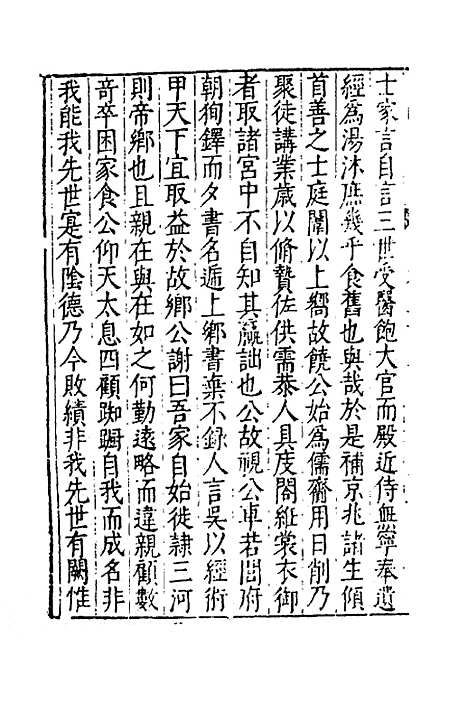 士家言自言三世受醫飽大官而殿近侍無寧奉遺
經為湯沐庶幾乎食舊也與哉於是補京兆諸生傾
首善之士庭闈以上嚮故饒公始為儒齋用日削乃
聚徒講業歲以脩贄佐供需恭人具庋閣絍裳衣御
者取諸宮中不自知其羸詘也公故視公車若閭府
朝狥鐸而夕書名遞上鄉書棄不録人言吳以經術
甲天下宜取益於故鄉公謝曰吾家自始徙隷三河
則帝鄉也且親在與在如之何勤遠略而違親顧數
竒卒困家食公仰天太息四顧踟蹰自我而成名非
我能我先世寔有隂德乃今敗績非我先世有闕惟